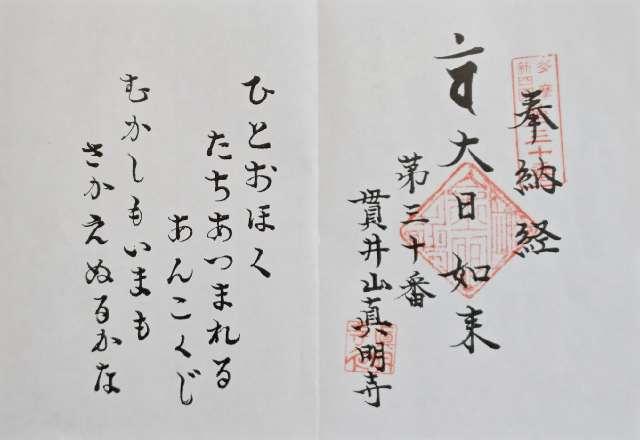 奉納経
大日如来
第三十番
貫井山真明寺
ひとおほく
たちあつまれる
あんこくじ
むかしもいまも
さかえぬるかな